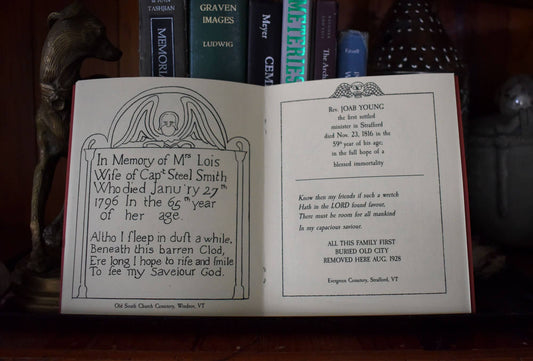 TASHJIAN
MEMORIA
GRAVEN
IMAGES
LUDWIG
Meyer
CEM
METERIES
The Arc
In Memory of Mrs Lois
Wife of Capt Steel Smith
Who died Janu'ry 27th
1796 In the 65th year
of her age.
Altho I ſleep in duſt a while,
Beneath this barren Clod,
Ere long I hope to riſe and ſmile
To ſee my Saveiour God.
Old South Church Cemetery, Windsor, VT
Rev. JOAB YOUNG
the first settled
minister in Strafford
died Nov. 23, 1816 in the
59th year of his age;
in the full hope of a
blessed immortality
Know then my friends if such a wretch
Hath in the LORD found favour,
There must be room for all mankind
In my capacious saviour.
ALL THIS FAMILY FIRST
BURIED OLD CITY
REMOVED HERE AUG. 1928
Evergreen Cemetery, Strafford, VT